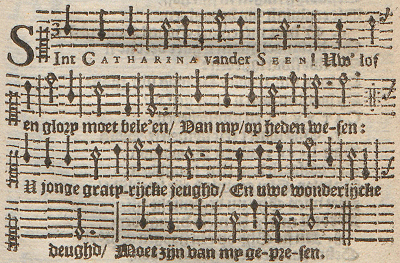 SInt CATHARINA vander SEEN! Uw' lof
en glory moet bele'en/ Van my/op heden we-sen:
U jonge graty-rijcke jeughd/ En uwe wonderlijcke
deughd/ Moet zijn van my ge-pre-sen.